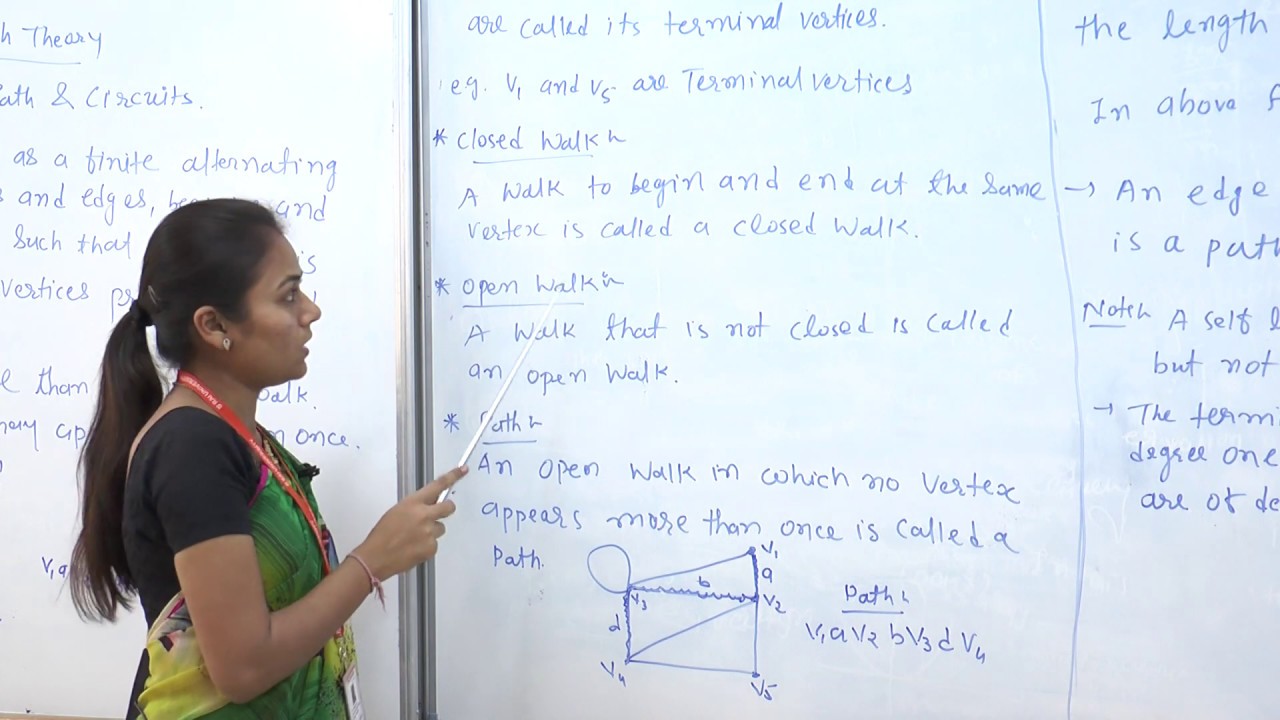 h Theory
ath & Circuits.
as a finite alternating
s and edges, and
Such that is
vertices
e than walk.
once.
are called its terminal vertices.
eg. V1 and V5 are Terminal vertices
* Closed Walk
A Walk to begin and end at the same
vertex is called a closed walk.
* Open Walk
A Walk that is not closed is called
an open walk.
* Path
An open walk in which no vertex
appears more than once is called a
Path.
V1
a
b
V3
V2
d
V4
V5
Path
V1 a V2 b V3 d V4
the length
In above f
→ An edge
is a path
Note A self l
but not
→ The termi
degree one
are of de